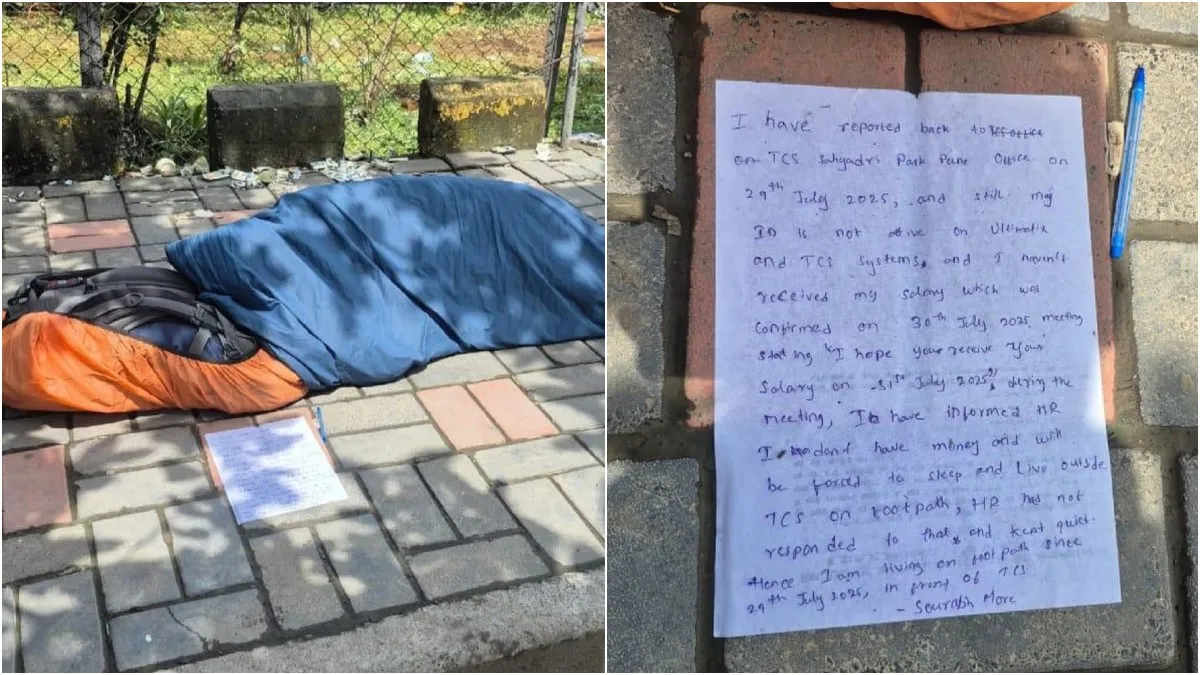 I have reported back to TCS office
on TCS Sahyadri Park Pune Office on
29th July 2025, and still my
ID is not active on Ultimatix
and TCS systems, and I haven't
received my salary which was
confirmed on 30th July 2025 meeting
stating "I hope you receive your
salary on 31st July 2025", during the
meeting, I have informed HR
I don't have money and will
be forced to sleep and live outside
TCS on footpath, HR has not
responded to that and kept quiet.
Hence I am living on footpath since
29th July 2025, in front of TCS
- Sourabh More